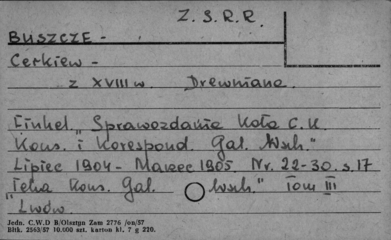 Z. S. R. R.
BUSZCZE -
Cerkiew -
z XVIII w Drewniana.
Finkel „Sprawozdanie Koła C. K.
Kons. i Korespond. Gal. Wsch."
Lipiec 1904 - Marzec 1905. Nr. 22-30. s. 17
Teka Kons. Gal. Wsch." Tom III
"Lwów
Jedn. C.W.D B/Olsztyn Zam 2776 /on/57
Bltk. 2563/57 10.000 szt. karton kl. 7 g 220.